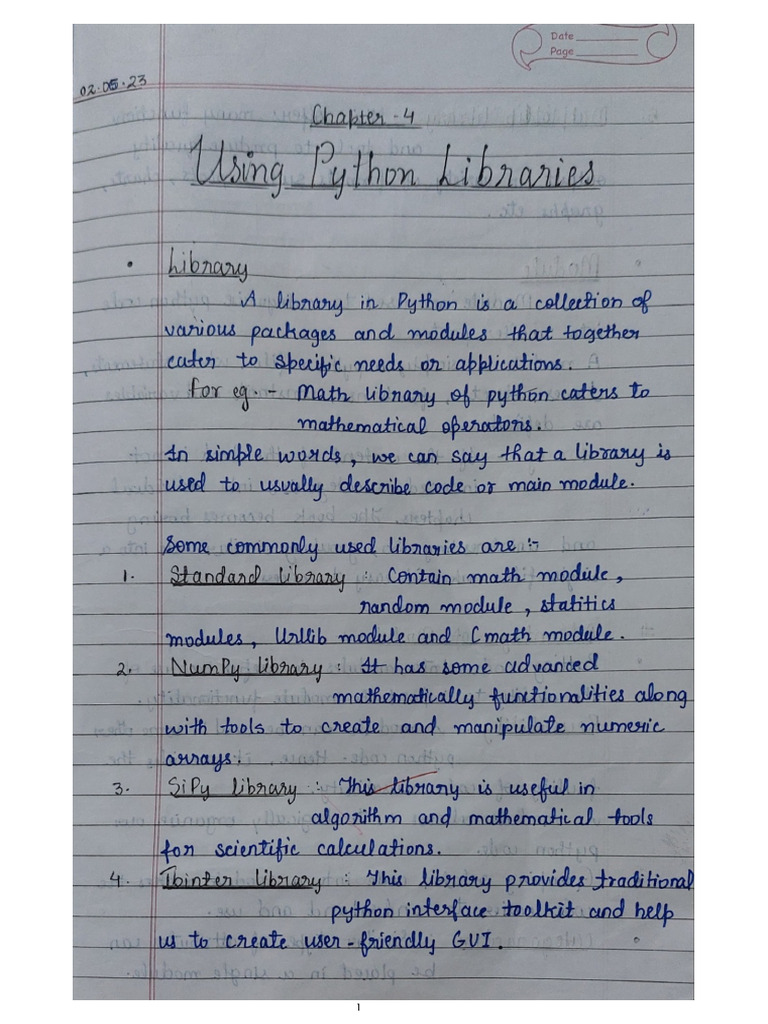 Date
Page
02.05.23
Chapter - 4
Using Python Libraries
• Library
A library in Python is a collection of
various packages and modules that together
cater to specific needs or applications.
for eg :- Math library of python caters to
mathematical operators.
In simple words, we can say that a library is
used to usually describe code or main module.
Some commonly used libraries are :-
1. Standard library : Contain math module,
random module, statitics
modules, Urllib module and Cmath module.
2. NumPy library : It has some advanced
mathematically functionalities along
with tools to create and manipulate numeric
arrays.
3. SiPy library : This library is useful in
algorithm and mathematical tools
for scientific calculations.
4. Tbinter library : This library provides traditional
python interface toolkit and help
us to create user-friendly GUI.
1